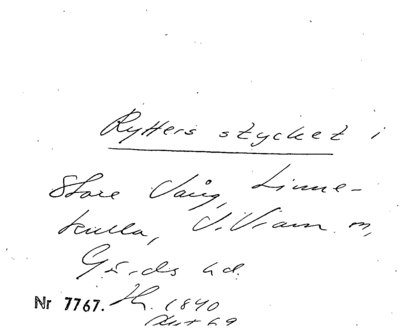 Rytters stycket i
Store Vång, Linne-
kulla, V. Vram m,
Gärds hd.
Nr 7767. Hr. 1840